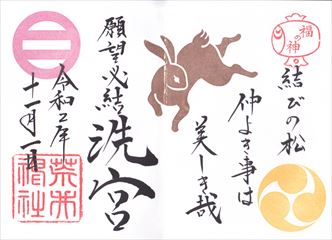 福の神
結びの松
仲よき事は
美しき哉
洗宮
願望必結
令和二年
十一月一日